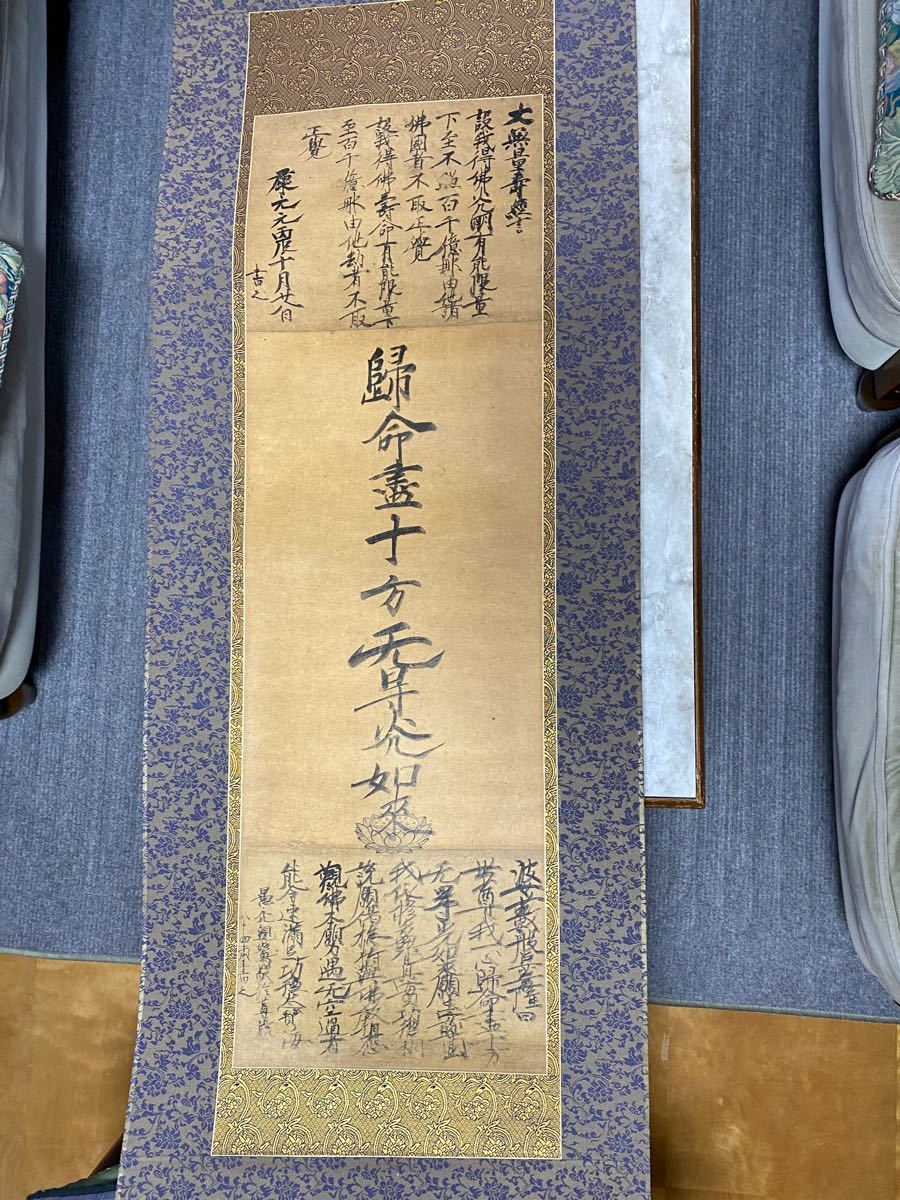 大無量壽經言
設我得佛光明有能限量
下至不照百千億那由諸
佛國者不取正覺
設我得佛壽命有能限量下
至百千億那由他劫者不取
正覺
康元元丙辰十月廿八日
書之
歸命盡十方无㝵光如來
婆菩薩曰
世尊我一心歸命盡十方
无㝵光如來願生安樂國
我依修多羅真實功德相
說願偈捴持與佛教相應
觀佛本願力遇无空過者
能令速滿足功德大寶海
愚禿親鸞敬信尊号
八十四歲書之